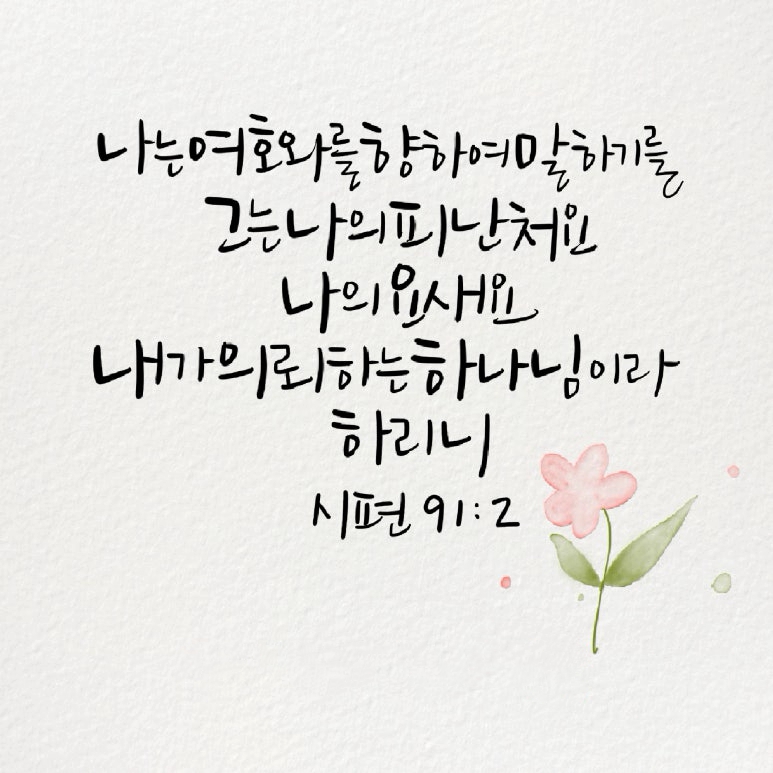 나는 여호와를 향하여 말하기를
그는 나의 피난처요
나의 요새요
내가 의뢰하는 하나님이라
하리니
시편 91:2